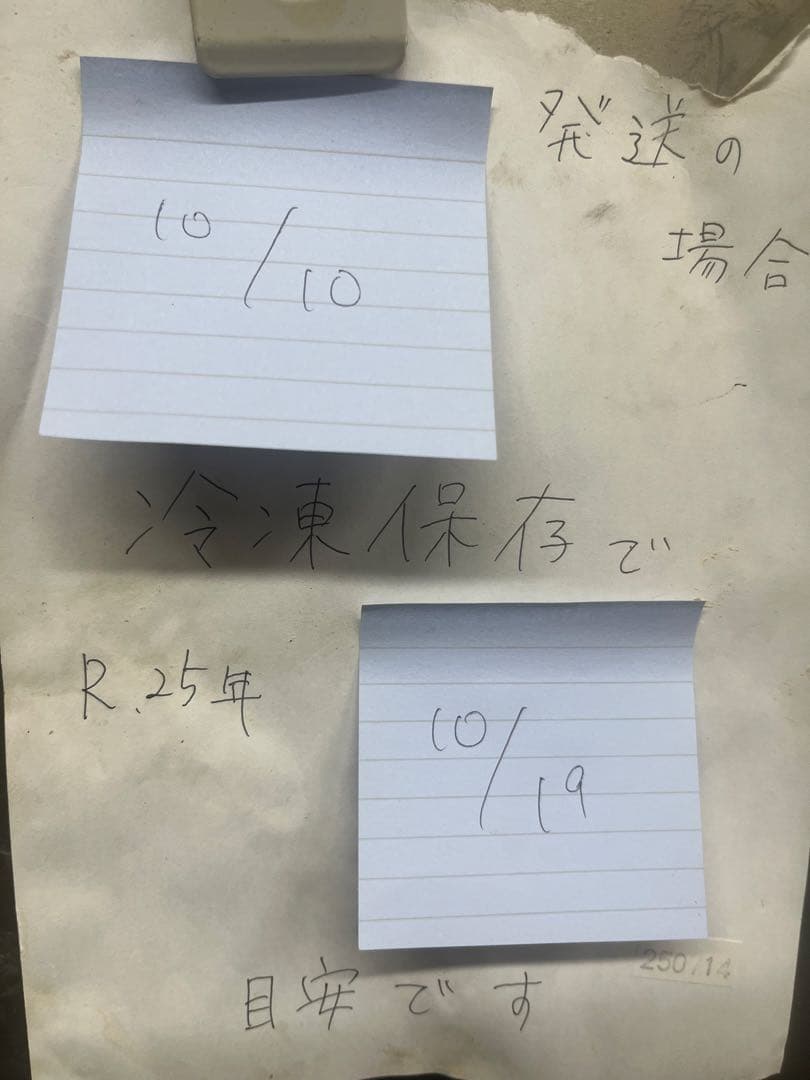 発送の
場合
10/10
冷凍保存で
R.25年
10/19
250.14
目安です